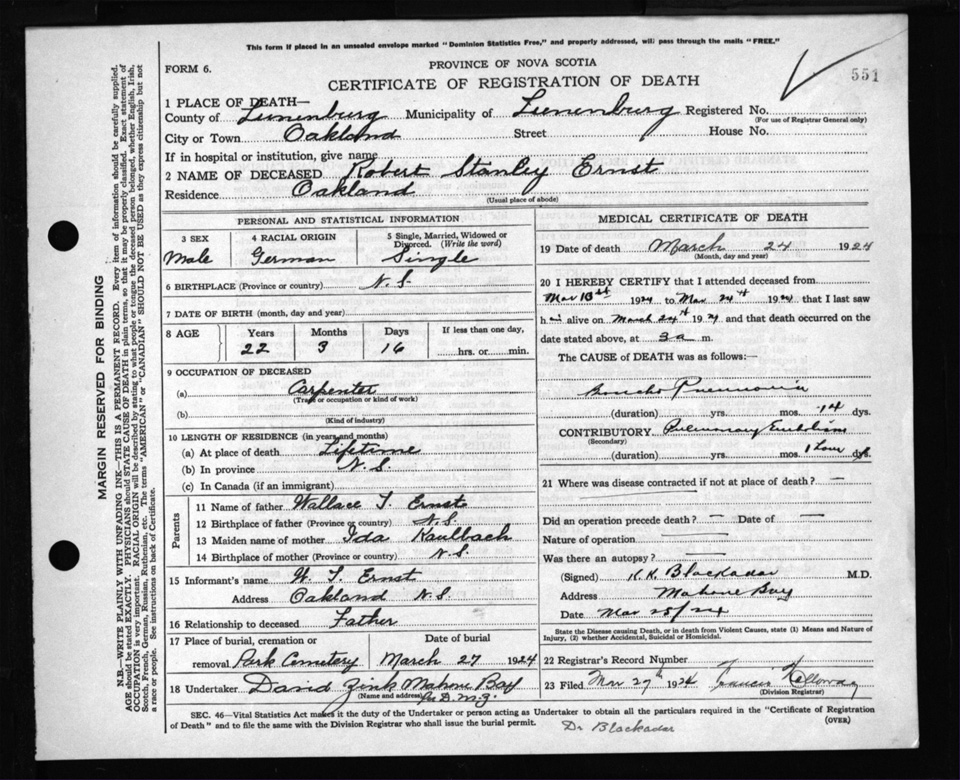 This form if placed in an unsealed envelope marked "Dominion Statistics Free," and properly addressed, will pass through the mails "FREE."
FORM 6.
PROVINCE OF NOVA SCOTIA
CERTIFICATE OF REGISTRATION OF DEATH
551
1 PLACE OF DEATH—
County of Lunenburg Municipality of Lunenburg Registered No.
(For use of Registrar General only)
City or Town Oakland Street House No.
If in hospital or institution, give name
2 NAME OF DECEASED Robert Stanley Ernst
Residence Oakland
(Usual place of abode)
PERSONAL AND STATISTICAL INFORMATION
3 SEX
Male
4 RACIAL ORIGIN
German
5 Single, Married, Widowed or Divorced. (Write the word)
Single
6 BIRTHPLACE (Province or country) N.S.
7 DATE OF BIRTH (month, day and year)
8 AGE Years Months Days If less than one day,
22 3 16 hrs. or min.
9 OCCUPATION OF DECEASED
(a) Carpenter
(Trade or occupation or kind of work)
(b)
(Kind of industry)
10 LENGTH OF RESIDENCE (in years and months)
(a) At place of death Lifetime
(b) In province N.S
(c) In Canada (if an immigrant)
Parents
11 Name of father Wallace T. Ernst
12 Birthplace of father (Province or country) N.S.
13 Maiden name of mother Ida Kaulbach
14 Birthplace of mother (Province or country) N.S.
15 Informant's name W. T. Ernst
Address Oakland N.S.
16 Relationship to deceased Father
17 Place of burial, cremation or Date of burial
removal Park Cemetery March 27 1924
18 Undertaker David Zink Mahone Bay
(Name and address) Per D.M.Z.
MEDICAL CERTIFICATE OF DEATH
19 Date of death March 24 1924
(Month, day and year)
20 I HEREBY CERTIFY that I attended deceased from
Mar 1924 to Mar 24th 1924 that I last saw
h alive on March 24th 1924 and that death occurred on the
date stated above, at 3 a m.
The CAUSE of DEATH was as follows:—
Broncho Pneumonia
(duration) yrs. mos. 14 dys.
CONTRIBUTORY Pulmonary Embolism
(Secondary)
(duration) yrs. mos. 1 hour dys.
21 Where was disease contracted if not at place of death? —
Did an operation precede death? — Date of —
Nature of operation
Was there an autopsy?
(Signed) Blackadar M.D.
Address Mahone Bay
Date Mar 25/24
State the Disease causing Death, or in death from Violent Causes, state (1) Means and Nature of Injury, (2) whether Accidental, Suicidal or Homicidal.
22 Registrar's Record Number
23 Filed Mar 27th 1924 Francis
(Division Registrar)
SEC. 46—Vital Statistics Act makes it the duty of the Undertaker or Person acting as Undertaker to obtain all the particulars required in the "Certificate of Registration
of Death" and to file the same with the Division Registrar who shall issue the burial permit.
(OVER)
Dr Blackadar
MARGIN RESERVED FOR BINDING
N.B.—WRITE PLAINLY WITH UNFADING INK—THIS IS A PERMANENT RECORD. Every item of information should be carefully supplied.
AGE should be stated EXACTLY. PHYSICIANS should STATE CAUSE OF DEATH in plain terms, so that it may be properly classified. Exact statement of
OCCUPATION is very important. RACIAL ORIGIN will be described by stating to what people or tongue the deceased person belonged, whether English, Irish,
Scotch, French, German, Russian, Ruthenian, etc. The terms "AMERICAN" or "CANADIAN" SHOULD NOT BE USED as they express citizenship but not
a race or people. See instructions on back of Certificate.